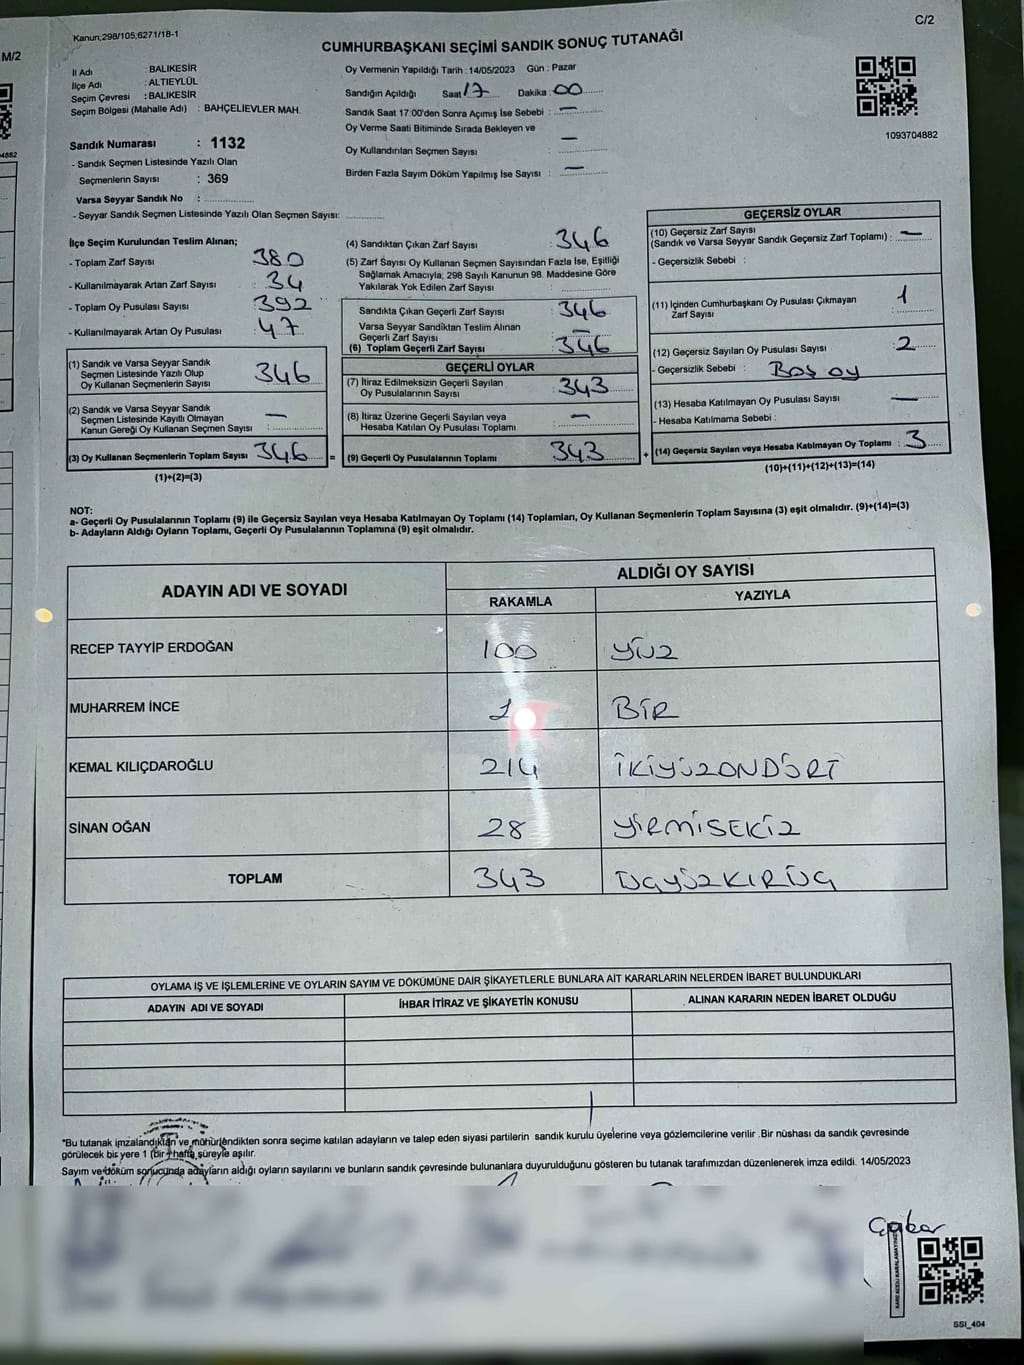 Kanun;298/105;6271/18-1
C/2
M/2
CUMHURBAŞKANI SEÇİMİ SANDIK SONUÇ TUTANAĞI
İl Adı : BALIKESİR
İlçe Adı : ALTIEYLÜL
Seçim Çevresi : BALIKESİR
Seçim Bölgesi (Mahalle Adı) : BAHÇELİEVLER MAH.
Oy Vermenin Yapıldığı Tarih : 14/05/2023 Gün : Pazar
Sandığın Açıldığı Saat 17 Dakika : 00
Sandık Saat 17:00'den Sonra Açımış İse Sebebi : —
Oy Verme Saati Bitiminde Sırada Bekleyen ve
Oy Kullandırılan Seçmen Sayısı : —
Birden Fazla Sayım Döküm Yapılmış İse Sayısı : —
1093704882
Sandık Numarası : 1132
- Sandık Seçmen Listesinde Yazılı Olan
Seçmenlerin Sayısı : 369
Varsa Seyyar Sandık No :
- Seyyar Sandık Seçmen Listesinde Yazılı Olan Seçmen Sayısı:
İlçe Seçim Kurulundan Teslim Alınan;
- Toplam Zarf Sayısı : 380
- Kullanılmayarak Artan Zarf Sayısı : 34
- Toplam Oy Pusulası Sayısı : 392
- Kullanılmayarak Artan Oy Pusulası : 47
(1) Sandık ve Varsa Seyyar Sandık
Seçmen Listesinde Yazılı Olup
Oy Kullanan Seçmenlerin Sayısı : 346
(2) Sandık ve Varsa Seyyar Sandık
Seçmen Listesinde Kayıtlı Olmayan
Kanun Gereği Oy Kullanan Seçmen Sayısı : —
(3) Oy Kullanan Seçmenlerin Toplam Sayısı : 346 =
(1)+(2)=(3)
(4) Sandıktan Çıkan Zarf Sayısı : 346
(5) Zarf Sayısı Oy Kullanan Seçmen Sayısından Fazla İse, Eşitliği
Sağlamak Amacıyla; 298 Sayılı Kanunun 98. Maddesine Göre
Yakılarak Yok Edilen Zarf Sayısı :
Sandıkta Çıkan Geçerli Zarf Sayısı : 346
Varsa Seyyar Sandıktan Teslim Alınan
Geçerli Zarf Sayısı : —
(6) Toplam Geçerli Zarf Sayısı : 346
GEÇERLİ OYLAR
(7) İtiraz Edilmeksizin Geçerli Sayılan
Oy Pusulasının Sayısı : 343
(8) İtiraz Üzerine Geçerli Sayılan veya
Hesaba Katılan Oy Pusulası Toplamı : —
(9) Geçerli Oy Pusulalarının Toplamı : 343 +
GEÇERSİZ OYLAR
(10) Geçersiz Zarf Sayısı
(Sandık ve Varsa Seyyar Sandık Geçersiz Zarf Toplamı) : —
- Geçersizlik Sebebi :
(11) İçinden Cumhurbaşkanı Oy Pusulası Çıkmayan
Zarf Sayısı : 1
(12) Geçersiz Sayılan Oy Pusulası Sayısı : 2
- Geçersizlik Sebebi : Boş oy
(13) Hesaba Katılmayan Oy Pusulası Sayısı : —
- Hesaba Katılmama Sebebi :
(14) Geçersiz Sayılan veya Hesaba Katılmayan Oy Toplamı : 3
(10)+(11)+(12)+(13)=(14)
NOT:
a- Geçerli Oy Pusulalarının Toplamı (9) ile Geçersiz Sayılan veya Hesaba Katılmayan Oy Toplamı (14) Toplamları, Oy Kullanan Seçmenlerin Toplam Sayısına (3) eşit olmalıdır. (9)+(14)=(3)
b- Adayların Aldığı Oyların Toplamı, Geçerli Oy Pusulalarının Toplamına (9) eşit olmalıdır.
ADAYIN ADI VE SOYADI
ALDIĞI OY SAYISI
RAKAMLA YAZIYLA
RECEP TAYYİP ERDOĞAN 100 YÜZ
MUHARREM İNCE 1 BİR
KEMAL KILIÇDAROĞLU 214 İKİYÜZONDÖRT
SİNAN OĞAN 28 YİRMİSEKİZ
TOPLAM 343 ÜÇYÜZKIRÜÇ
OYLAMA İŞ VE İŞLEMLERİNE VE OYLARIN SAYIM VE DÖKÜMÜNE DAİR ŞİKAYETLERLE BUNLARA AİT KARARLARIN NELERDEN İBARET BULUNDUKLARI
ADAYIN ADI VE SOYADI İHBAR İTİRAZ VE ŞİKAYETİN KONUSU ALINAN KARARIN NEDEN İBARET OLDUĞU
*Bu tutanak imzalandıktan ve mühürlendikten sonra seçime katılan adayların ve talep eden siyasi partilerin sandık kurulu üyelerine veya gözlemcilerine verilir .Bir nüshası da sandık çevresinde
görülecek bir yere 1 (bir) hafta süreyle asılır.
Sayım ve döküm sonucunda adayların aldığı oyların sayılarını ve bunların sandık çevresinde bulunanlara duyurulduğunu gösteren bu tutanak tarafımızdan düzenlenerek imza edildi. 14/05/2023
SSI_404